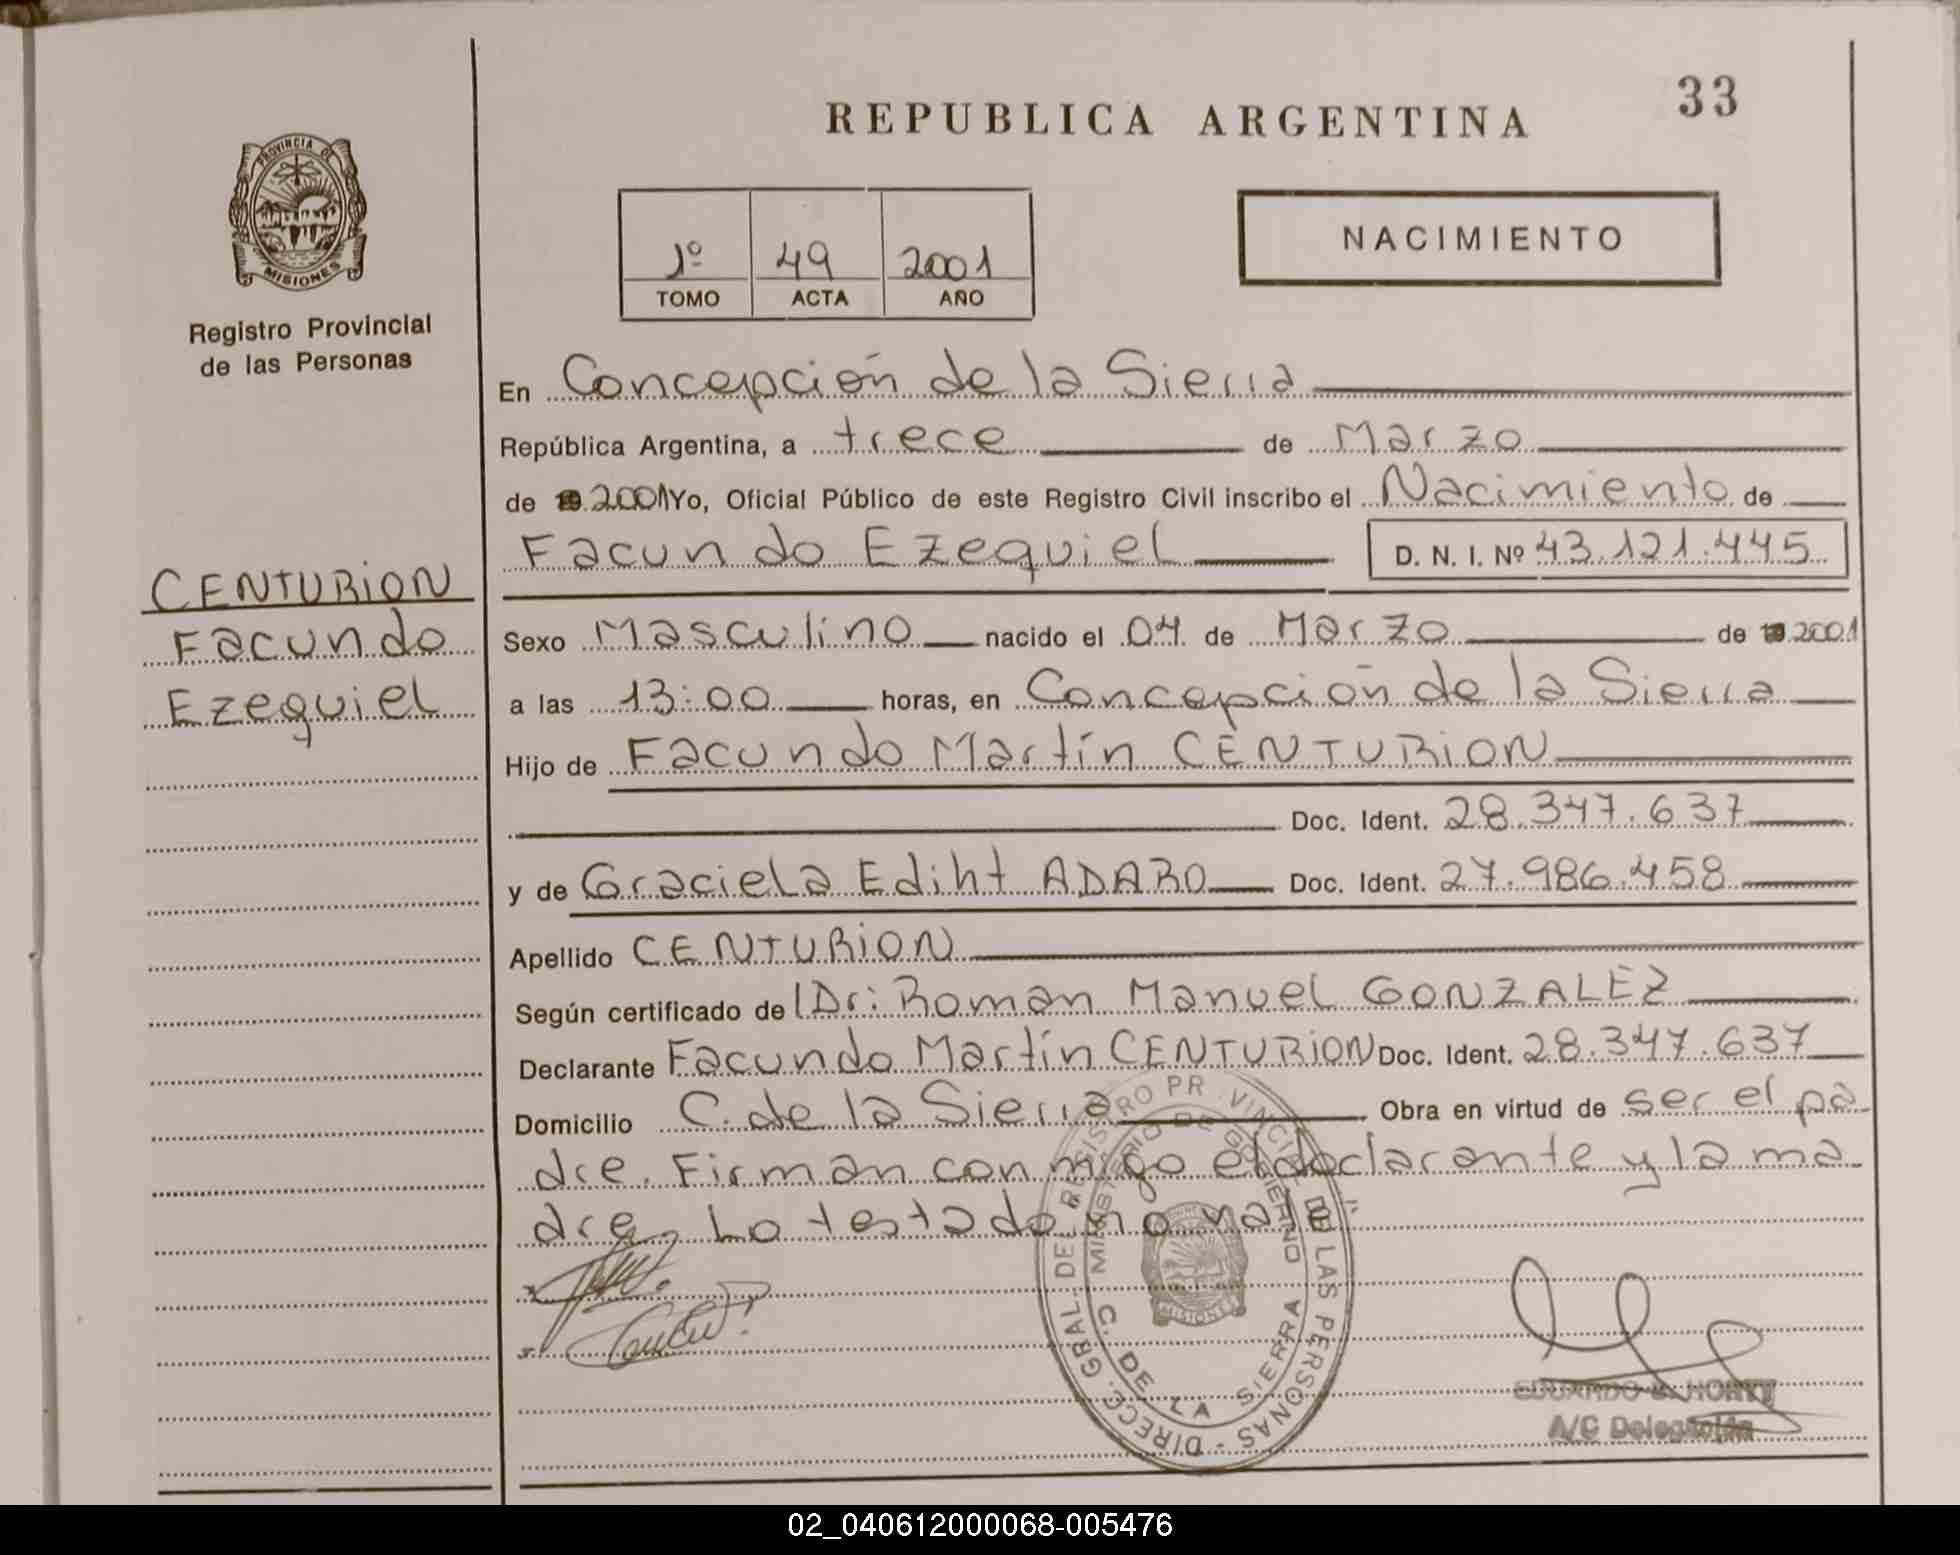 33
REPUBLICA ARGENTINA
PROVINCIA DE
MISIONES
Registro Provincial
de las Personas
NACIMIENTO
1º 49 2001
TOMO ACTA AÑO
En Concepción de la Sierra
República Argentina, a trece de Marzo
de 19 2001 Yo, Oficial Público de este Registro Civil inscribo el Nacimiento de
Facundo Ezequiel D. N. I. Nº 43.121.445
CENTURION
Facundo
Ezequiel
Sexo Masculino nacido el 04 de Marzo de 19 2001
a las 13:00 horas, en Concepción de la Sierra
Hijo de Facundo Martín CENTURION
Doc. Ident. 28.347.637
y de Graciela Ediht ADARO Doc. Ident. 27.986.458
Apellido CENTURION
Según certificado de Dr: Roman Manuel GONZALEZ
Declarante Facundo Martín CENTURION Doc. Ident. 28.347.637
Domicilio C. de la Sierra Obra en virtud de ser el pa
dre. Firman conmigo el declarante y la ma
dre. Lo testado no vale
DIRECC. GRAL. DEL REGISTRO PROVINCIAL DE LAS PERSONAS
MINISTERIO DE GOBIERNO
C. DE LA SIERRA
MISIONES
EDUARDO
A/C Delegación
02_040612000068-005476